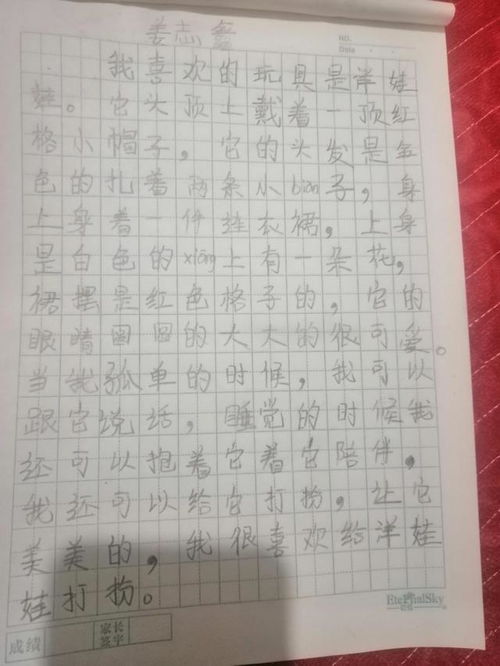 姜志鑫
NO.
Date
我喜欢的玩具是洋娃
娃。它头顶上戴着一顶红
格小帽子，它的头发是金
色的扎着两条小biàn子，身
上身着一件挂衣裙，上身
是白色的xiāng上有一朵花，
裙摆是红色格子的，它的
眼睛圆圆的大大的很可爱。
当我孤单的时候，我可以
跟它说话，睡觉的时候我
还可以抱着它着它陪伴，
我还可以给它打扮，让它
美美的，我很喜欢给洋娃
娃打扮。
EteRnalSky
成绩 家长签字